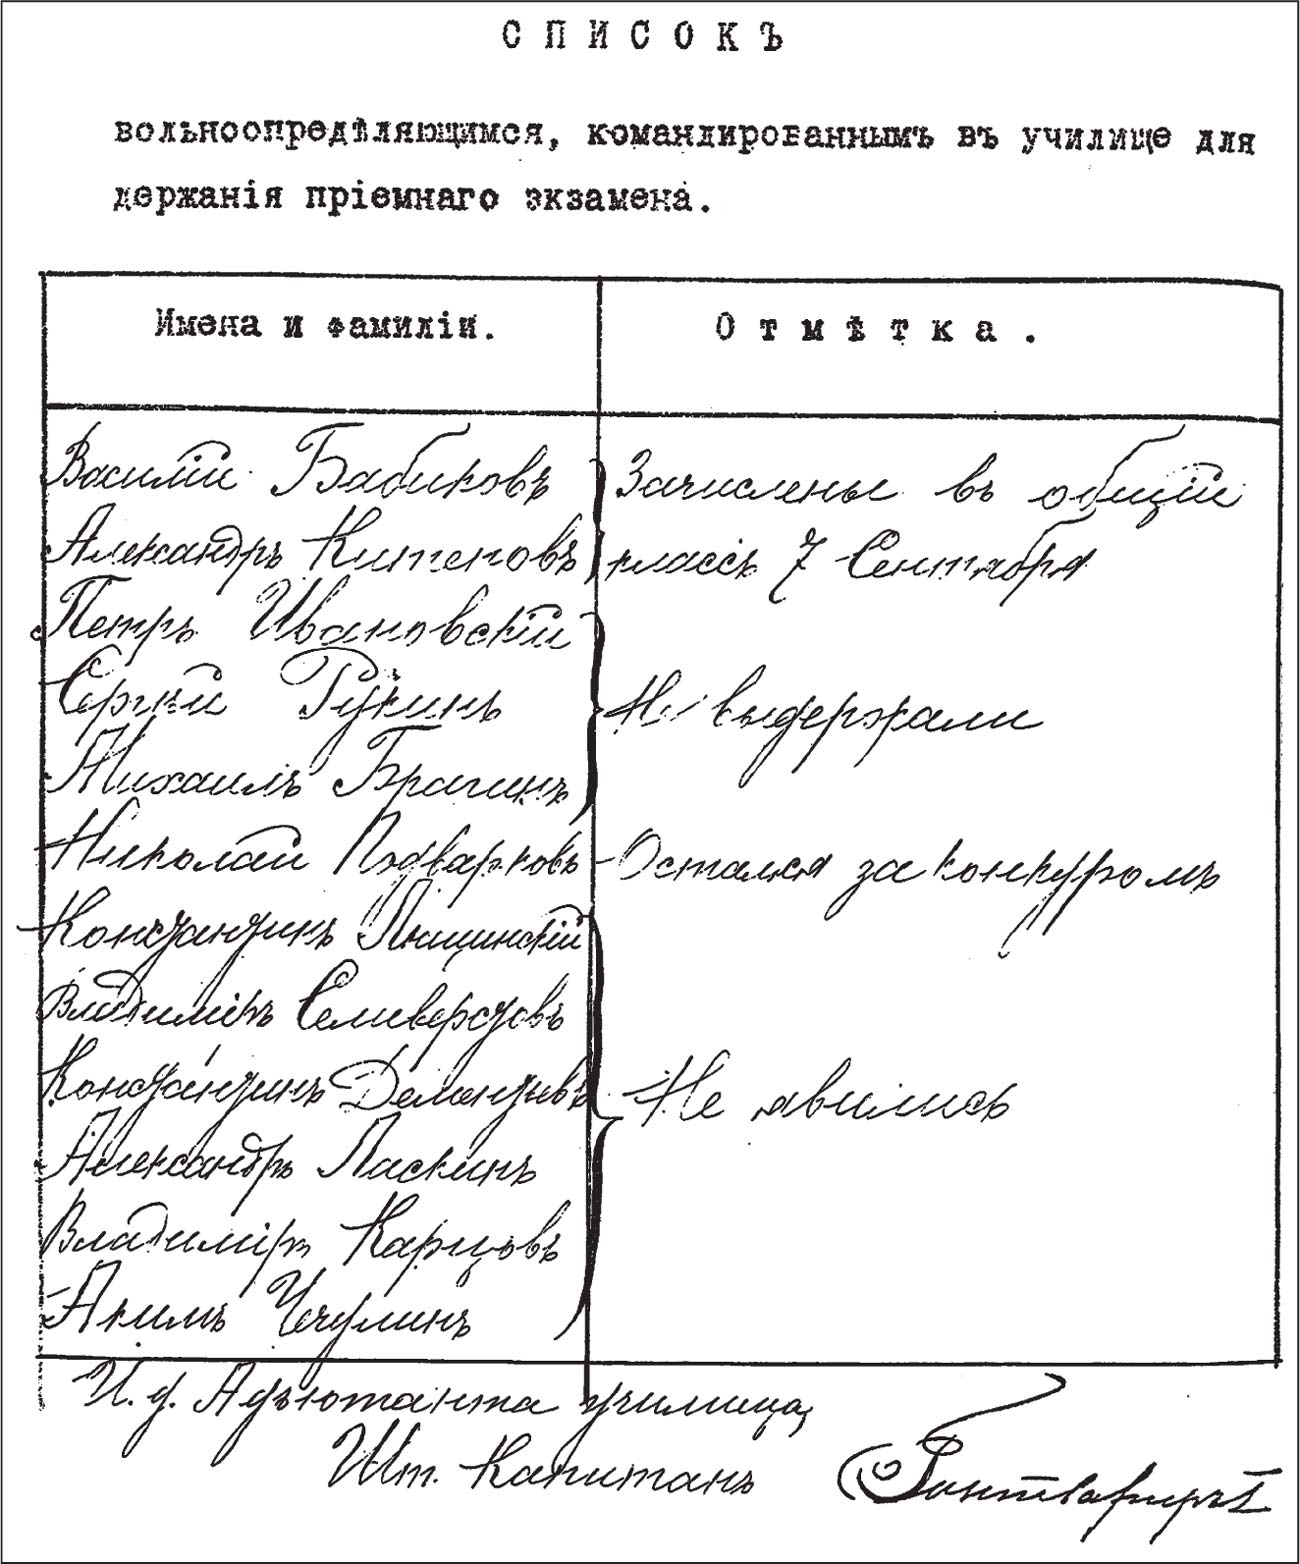 СПИСОКЪ
вольноопредѣляющимся, командированнымъ въ училище для
держанія пріемнаго экзамена.
Имена и фамиліи. Отмѣтка.
Василій Бабиковъ Зачислены въ общій
Александръ Китеновъ классъ 7 Сентября
Петръ Ивановскій
Сергѣй Рукинъ Не выдержали
Михаилъ Брагинъ
Николай Подварковъ - Остался за конкуромъ
Константинъ Пющинскій
Владиміръ Селиверстовъ
Константинъ Дементьевъ Не явились
Александръ Паскинъ
Владиміръ Карцовъ
Акимъ Чечулинъ
И. д. Адъютанта училища,
Шт. Капитанъ